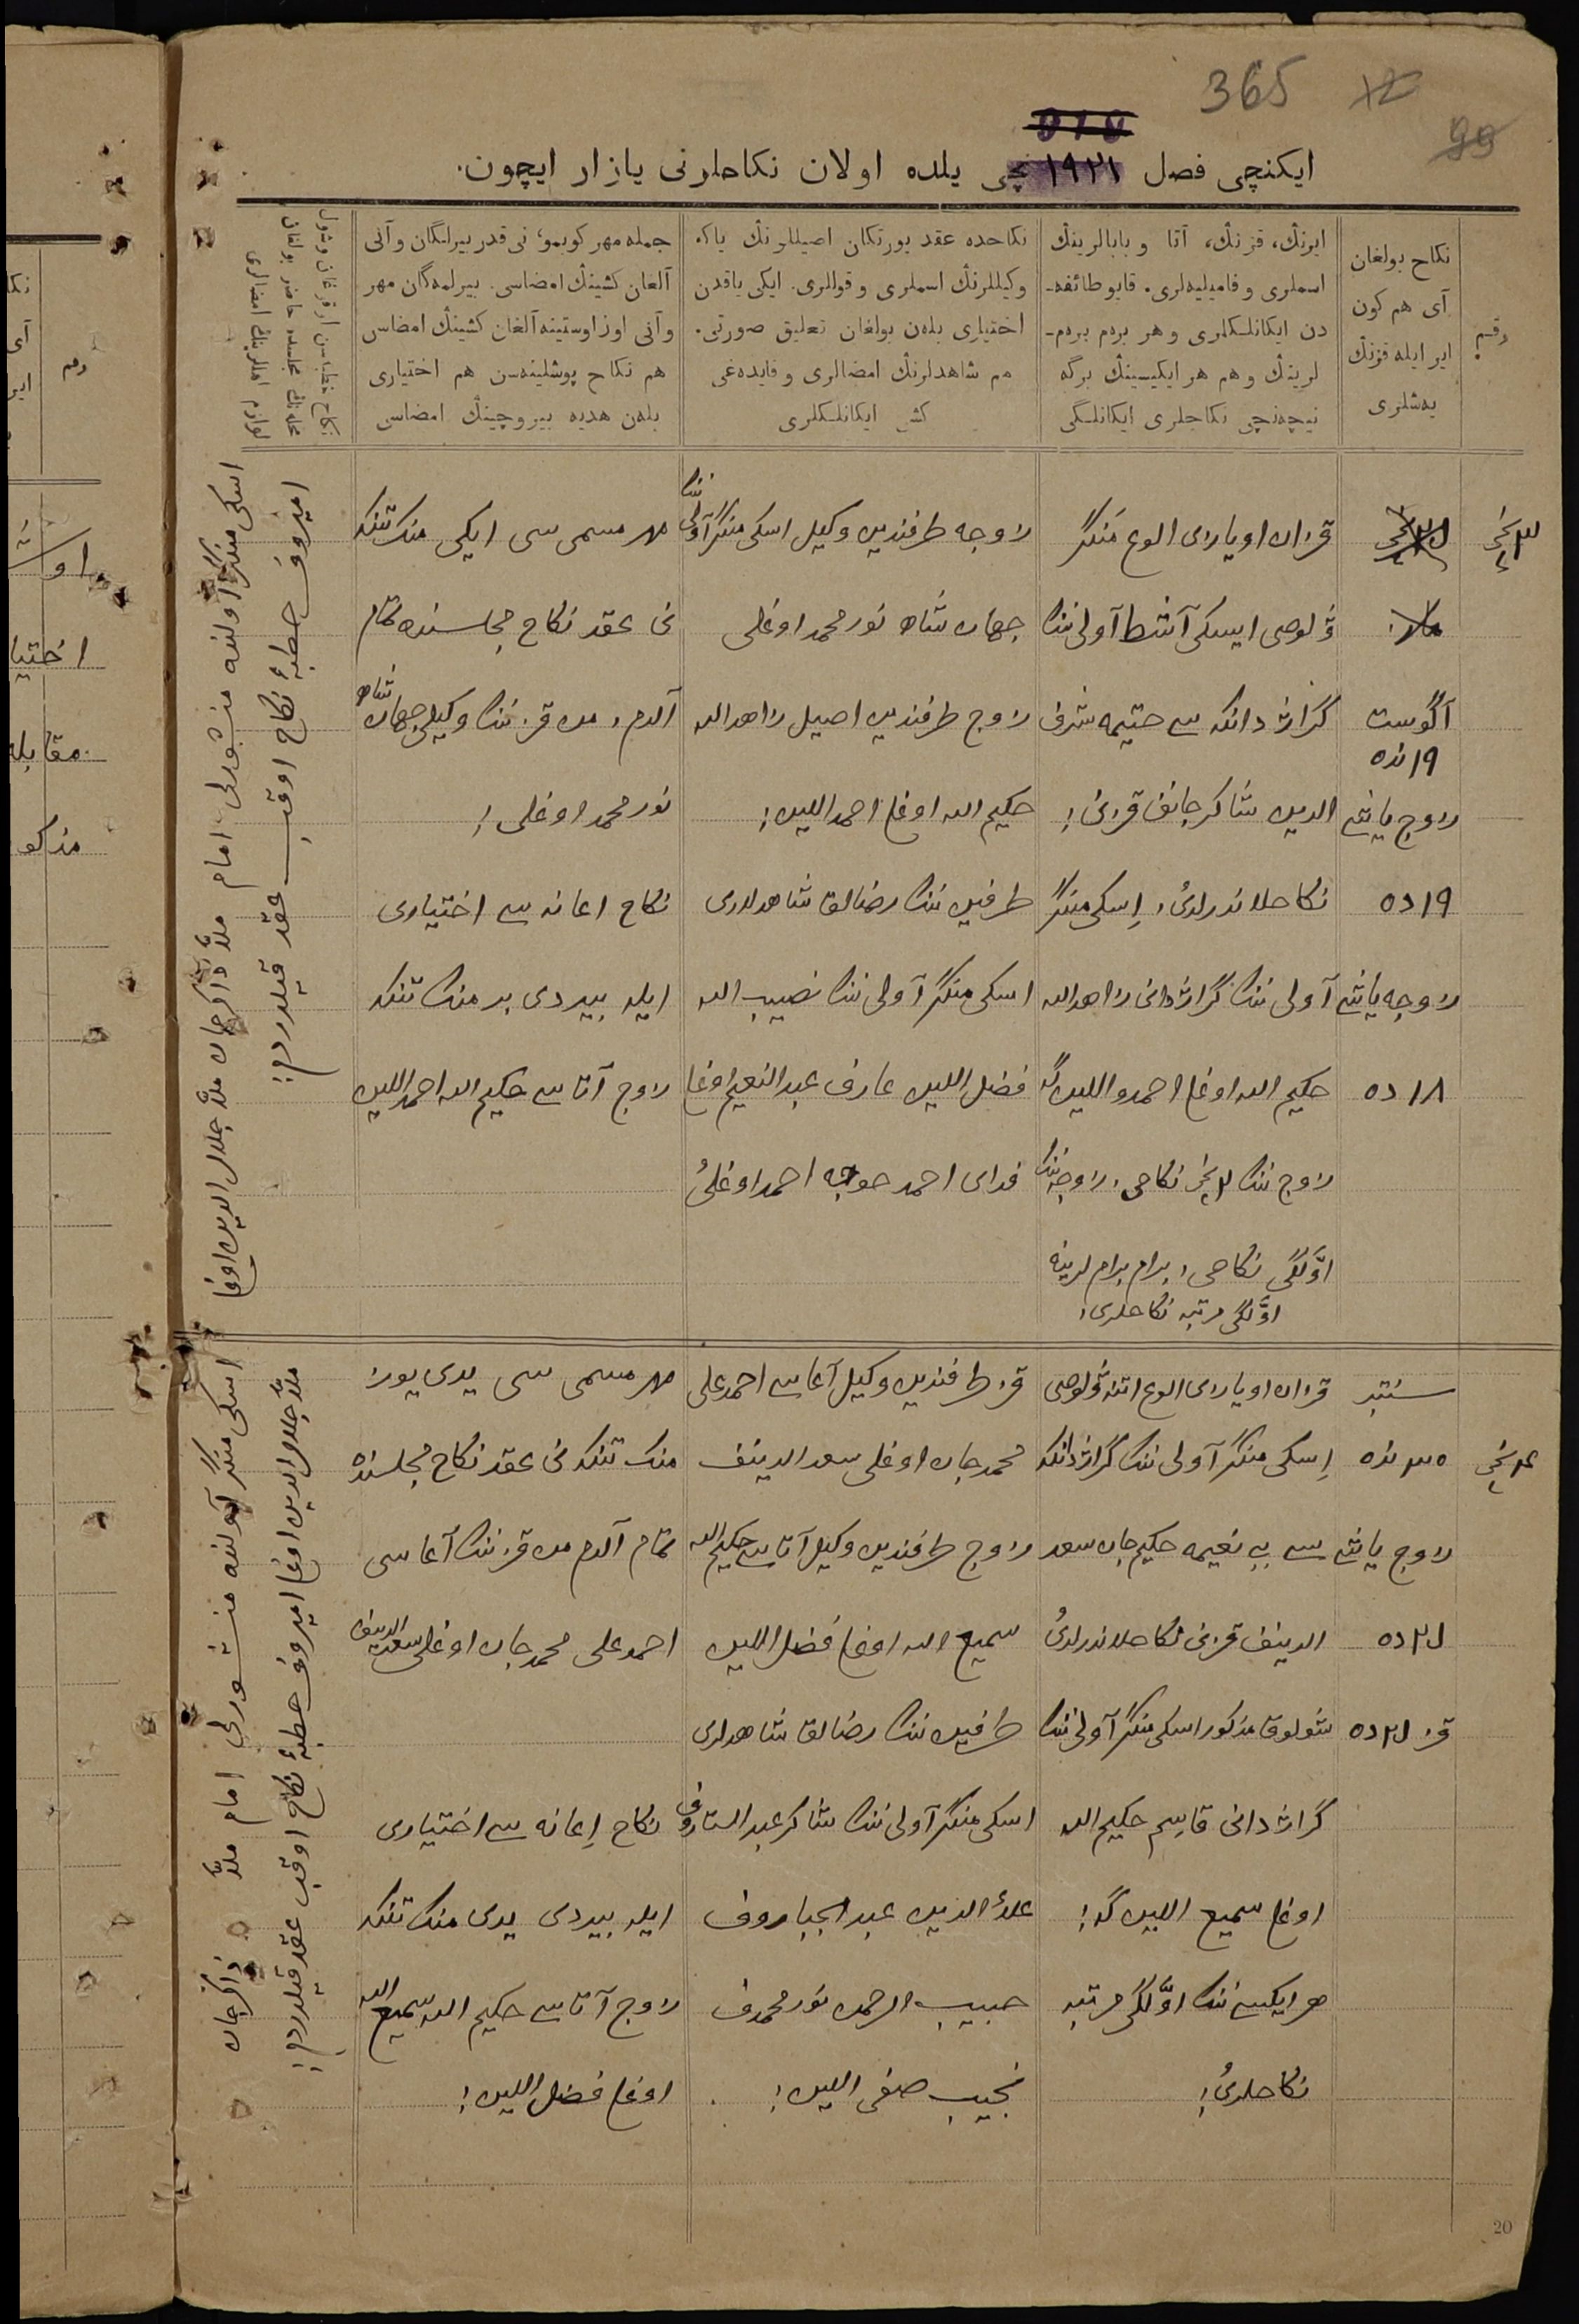 365
99
ایکنچی فصل ۱۹۲۱ نچی یلده اولان نکاحلرنی یازار ایچون.
رقم
نکاح بولغان
آی هم کون
ایر ایله قزنڭ
یەشلری
ایرنڭ، قزنڭ، آتا و بابالرینڭ
اسملری و فامیلیەلری. قایو طائفه‌-
دن ایکانلکلری و هر بردم بردم-
لرینڭ و هم هر ایکیسینڭ برگه
نیچەنچی نکاحلری ایکانلیگی
نکاحده عقد یورتکان اصیللرنڭ یاکه
وکیللرنڭ اسملری و قوللری. ایکی یاقدن
اختیاری بلەن بولغان تعلیق صورتی.
هم شاهدلرنڭ امضالری و قایدەغی
کشی ایکانلکلری
جمله مهر کوبمو، نی قدر بیرلگان و آنی
آلغان کشینڭ امضاسی. بیرلمەگان مهر
و آنی اوز اوستینه آلغان کشینڭ امضاسی
هم نکاح پوشلینەسن هم اختیاری
بلەن هدیه بیروچینڭ امضاسی
۳ نچی
آگوست
۱۹ نده
زوج یاشی
۱۹ ده
زوجه یاشی
۱۸ ده
قزان اویازی الوغ منگر
ۋلوصی ایسکی آشط آولی ننک
گراژدانکه سی حتیمه شرف
الدین شاکرجانف قزنی؛
نکاحلاندرلدی، اسکی منگر
آولی ننک گراژدانی زاهدالله
حکیم الله اوغلی احمدواللین گه
زوج ننک ۲ نچی نکاحی، زوجه ننک
اوّلگی نکاحی، برام برام لرینه
اوّلگی مرتبه نکاحلری؛
زوجه طرفندین وکیل اسکی منگر آولی ننک
جهان شاه نورمحمد اوغلی
زوج طرفندین اصیل زاهدالله
حکیم الله اوغلی احمداللین؛
طرفین ننک رضالق شاهدلری
اسکی منگر آولی ننک نصیب الله
فضل اللین عارف عبدالنعیم اوغلی
فدای احمد خوجه احمد اوغلی
مهر مسمی سی ایکی منک تنکه
نی عقد نکاح مجلسنده تمام
آلدم، من قز ننک وکیلی جهان شاه
نورمحمد اوغلی؛
نکاح اعانه سی اختیاری
ایله بیردی بر منک تنکه
زوج آتا سی حکیم الله احمداللین
اسکی منگر آولنده منشورلی امام ملّا ذاکرجان ملّا جلال الدین اوغلی
امیروف خطبۀ نکاح اوقب عقد قیلدردم؛
۴ نچی
سنتبر
۲۵ نده
زوج یاشی
۲۵ ده
قز ۲۵ ده
قزان اویازی الوغ اتنه ۋلوصی
اسکی منگر آولی ننک گراژدانکه
سی بی نعیمه حکیم جان سعد
الدینف قزنی نکاحلاندرلدی
شولوق مذکور اسکی منگر آولی ننک
گراژدانی قاسم حکیم الله
اوغلی سمیع اللین گه؛
هر ایکیسی ننک اوّلگی مرتبه
نکاحلری؛
قز طرفندین وکیل آغا سی احمدعلی
محمدجان اوغلی سعدالدینف
زوج طرفندین وکیل آتا سی حکیم الله
سمیع الله اوغلی فضل اللین
طرفین ننک رضالق شاهدلری
اسکی منگر آولی ننک شاکر عبدالستاروف
علاءالدین عبدالجباروف
حبیب الرحمن نورمحمدف
نجیب صفی اللین؛
مهر مسمی سی یدی یوز
منک تنکه نی عقد نکاح مجلسنده
تمام آلدم من قز ننک آغا سی
احمدعلی محمدجان اوغلی سعدالدینف
نکاح اعانه سی اختیاری
ایله بیردی یدی منک تنکه
زوج آتا سی حکیم الله سمیع الله
اوغلی فضل اللین؛
اسکی منگر آولنده منشورلی امام ملّا ذاکرجان
ملّا جلال الدین اوغلی امیروف خطبۀ نکاح اوقب عقد قیلدردم؛
20